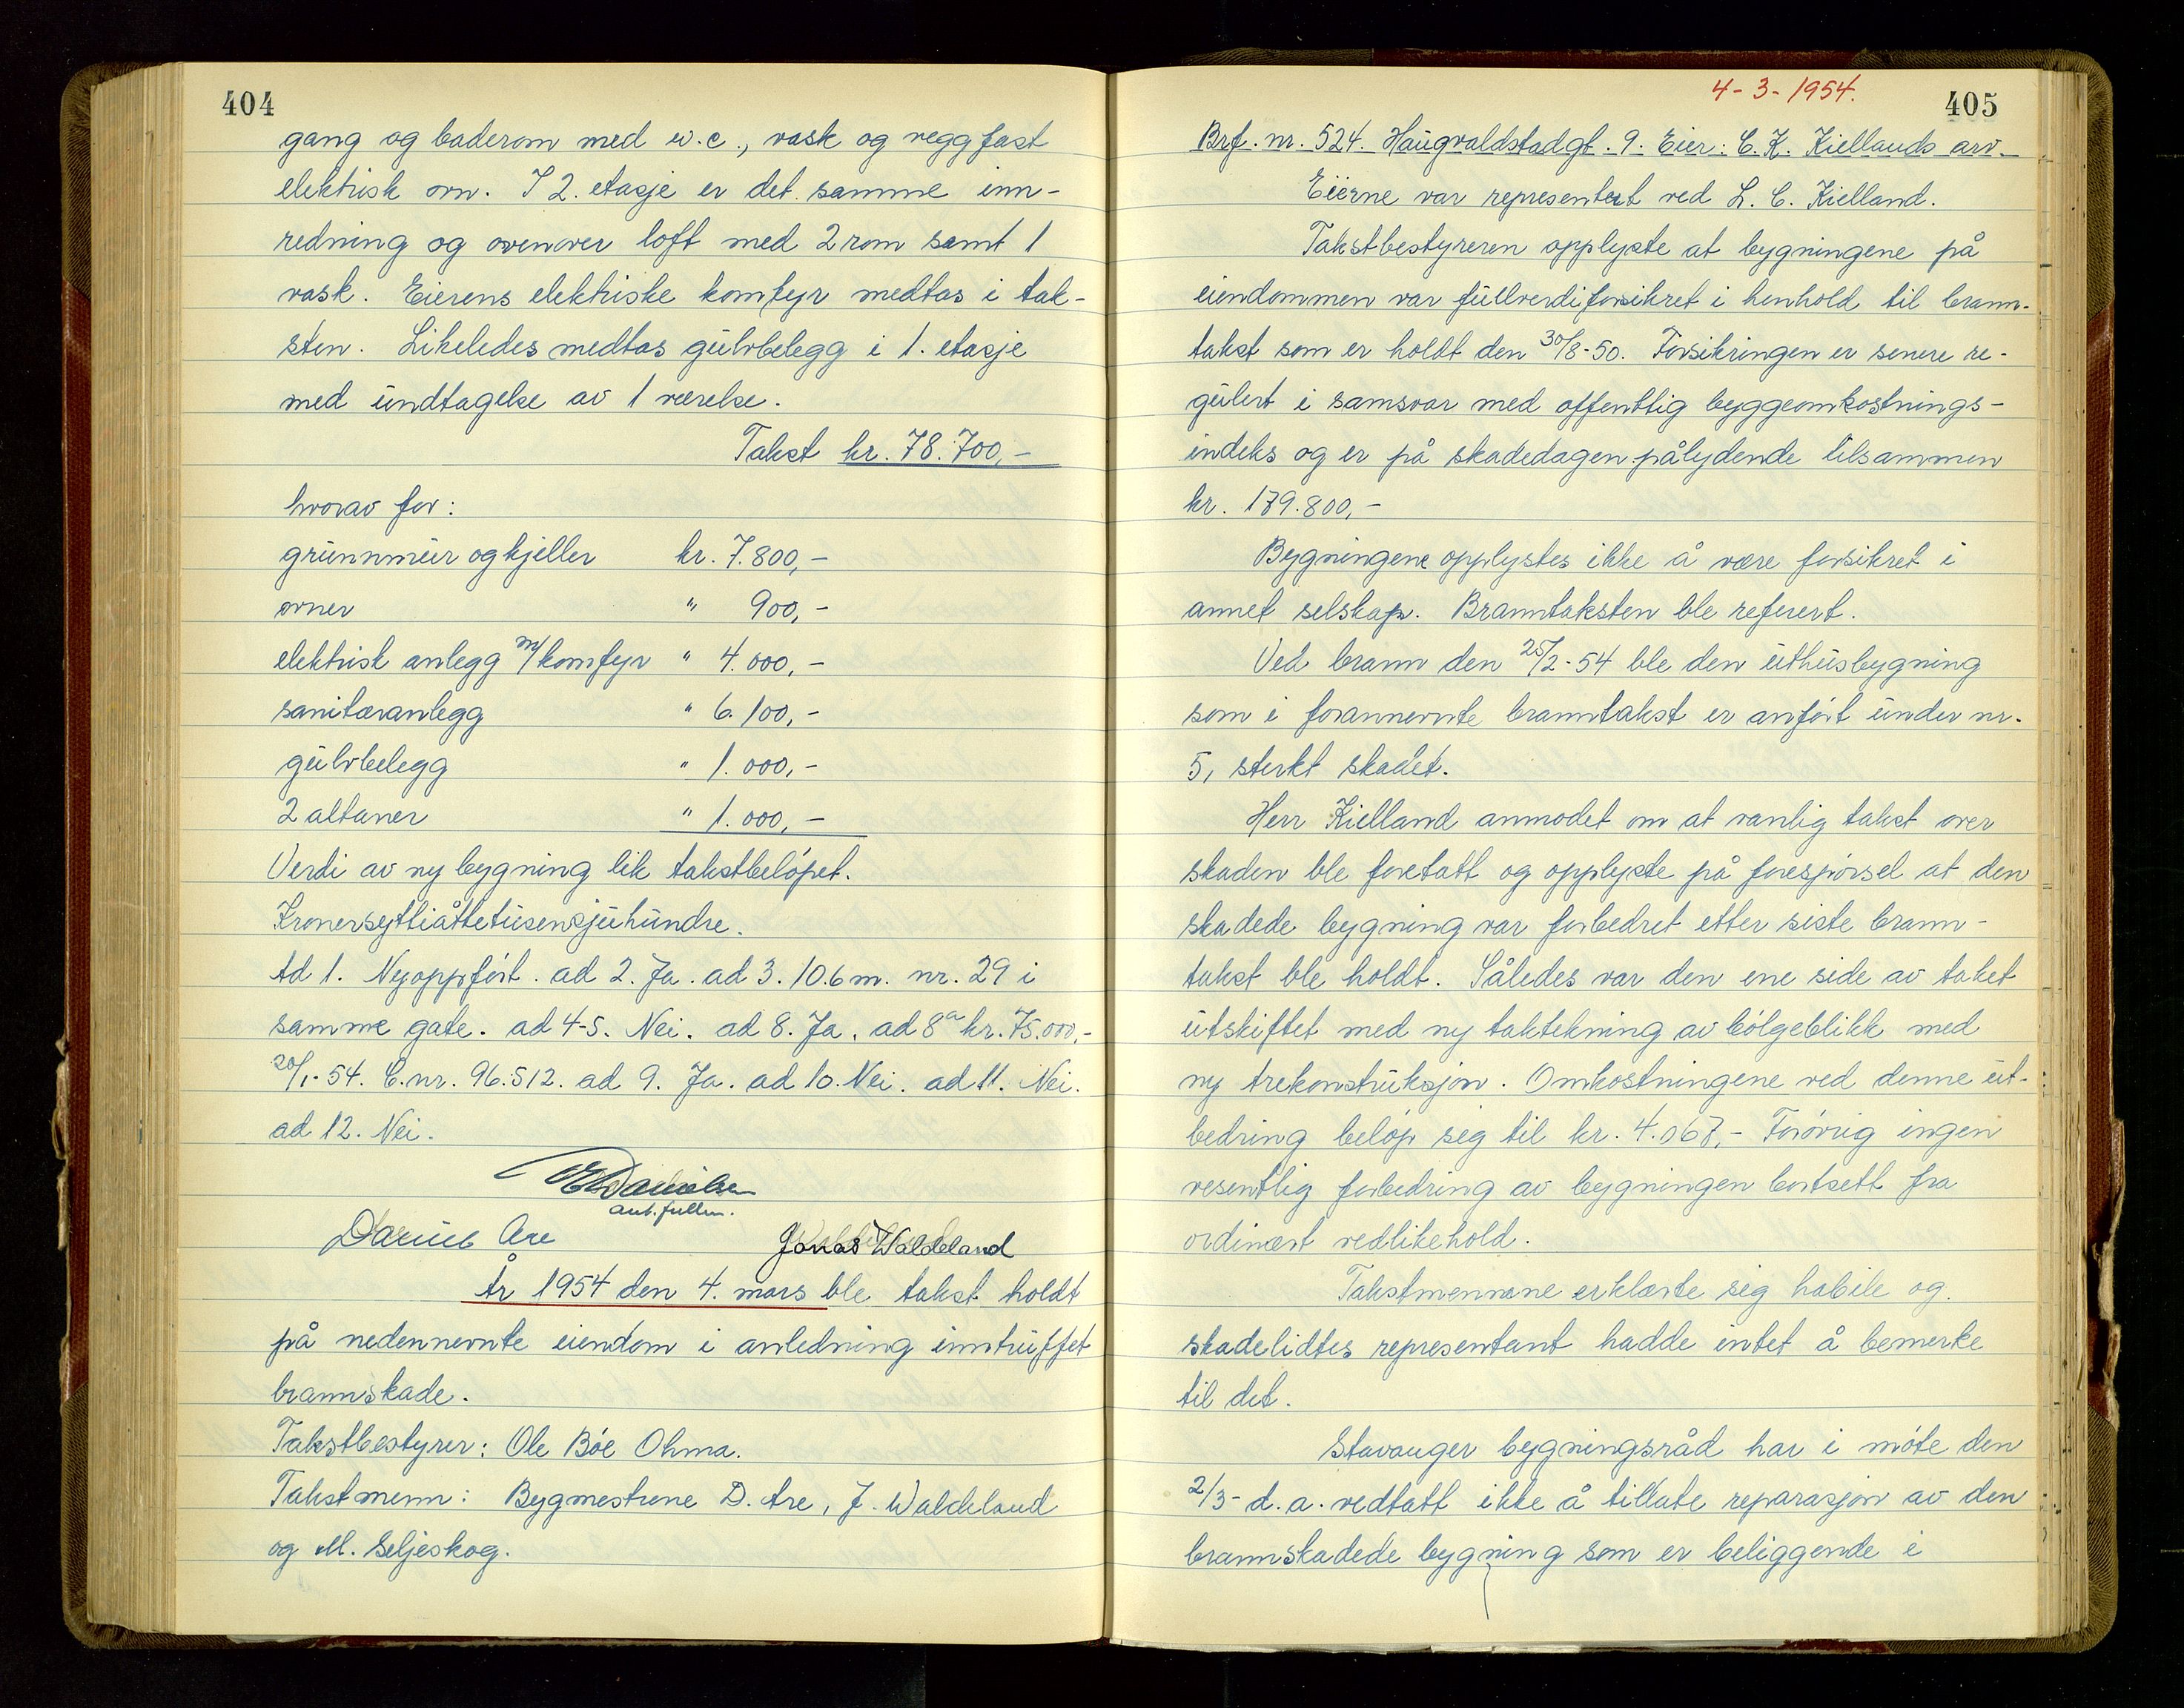 404
gang og baderom med w.c., vask og veggfast
elektrisk ovn. I 2. etasje er det samme inn-
redning og ovenover loft med 2 rom samt 1
vask. Eierens elektriske komfyr medtas i tak-
sten. Likeledes medtas gulvbelegg i 1. etasje
med undtagelse av 1 værelse.
Takst kr. 78.700,-
hvorav for:
grunnmur og kjeller kr. 7.800,-
ovner " 900,-
elektrisk anlegg m/komfyr " 4.000,-
sanitæranlegg " 6.100,-
gulvbelegg " 1.000,-
2 altaner " 1.000,-
Verdi av ny bygning lik takstbeløpet.
Kronersyttiåttetusensjuhundre.
Ad 1. Nyoppført. ad 2. Ja. ad 3. 10.6 m. nr. 29 i
samme gate. ad 4-5. Nei. ad 8. Ja. ad 8a kr. 75.000,-
20/1-54. C.nr. 96.512. ad 9. Ja. ad 10. Nei. ad 11. Nei.
ad 12. Nei.
Danielsen
aut. fullm.
Darius Are Jonas Waldeland
År 1954 den 4. mars ble takst holdt
på nedennevnte eiendom i anledning inntruffet
brannskade.
Takstbestyrer: Ole Bøe Ohma.
Takstmenn: Bygmestrene D. Are, J. Waldeland
og M. Seljeskog.
4-3-1954.
405
Brf. nr. 524. Haugvaldstadgt. 9. Eier: C. K. Kiellands arv.
Eierne var representert ved L. C. Kielland.
Takstbestyreren opplyste at bygningene på
eiendommen var fullverdiforsikret i henhold til brann-
takst som er holdt den 30/8-50. Forsikringen er senere re-
gulert i samsvar med offentlig byggeomkostnings-
indeks og er på skadedagen pålydende tilsammen
kr. 179.800,-
Bygningene opplystes ikke å være forsikret i
annet selskap. Branntaksten ble referert.
Ved brann den 25/2-54 ble den uthusbygning
som i forannevnte branntakst er anført under nr.
5, sterkt skadet.
Herr Kielland anmodet om at vanlig takst over
skaden ble foretatt og opplyste på forespørsel at den
skadede bygning var forbedret etter siste brann-
takst ble holdt. Således var den ene side av taket
utskiftet med ny taktekning av bølgeblikk med
ny trekonstruksjon. Omkostningene ved denne ut-
bedring beløp seg til kr. 4.067,- Forøvrig ingen
vesentlig forbedring av bygningen bortsett fra
ordinært vedlikehold.
Takstmennene erklærte sig habile og
skadelidtes representant hadde intet å bemerke
til det.
Stavanger bygningsråd har i møte den
2/3- d.a. vedtatt ikke å tillate reparasjon av den
brannskadede bygning som er beliggende i